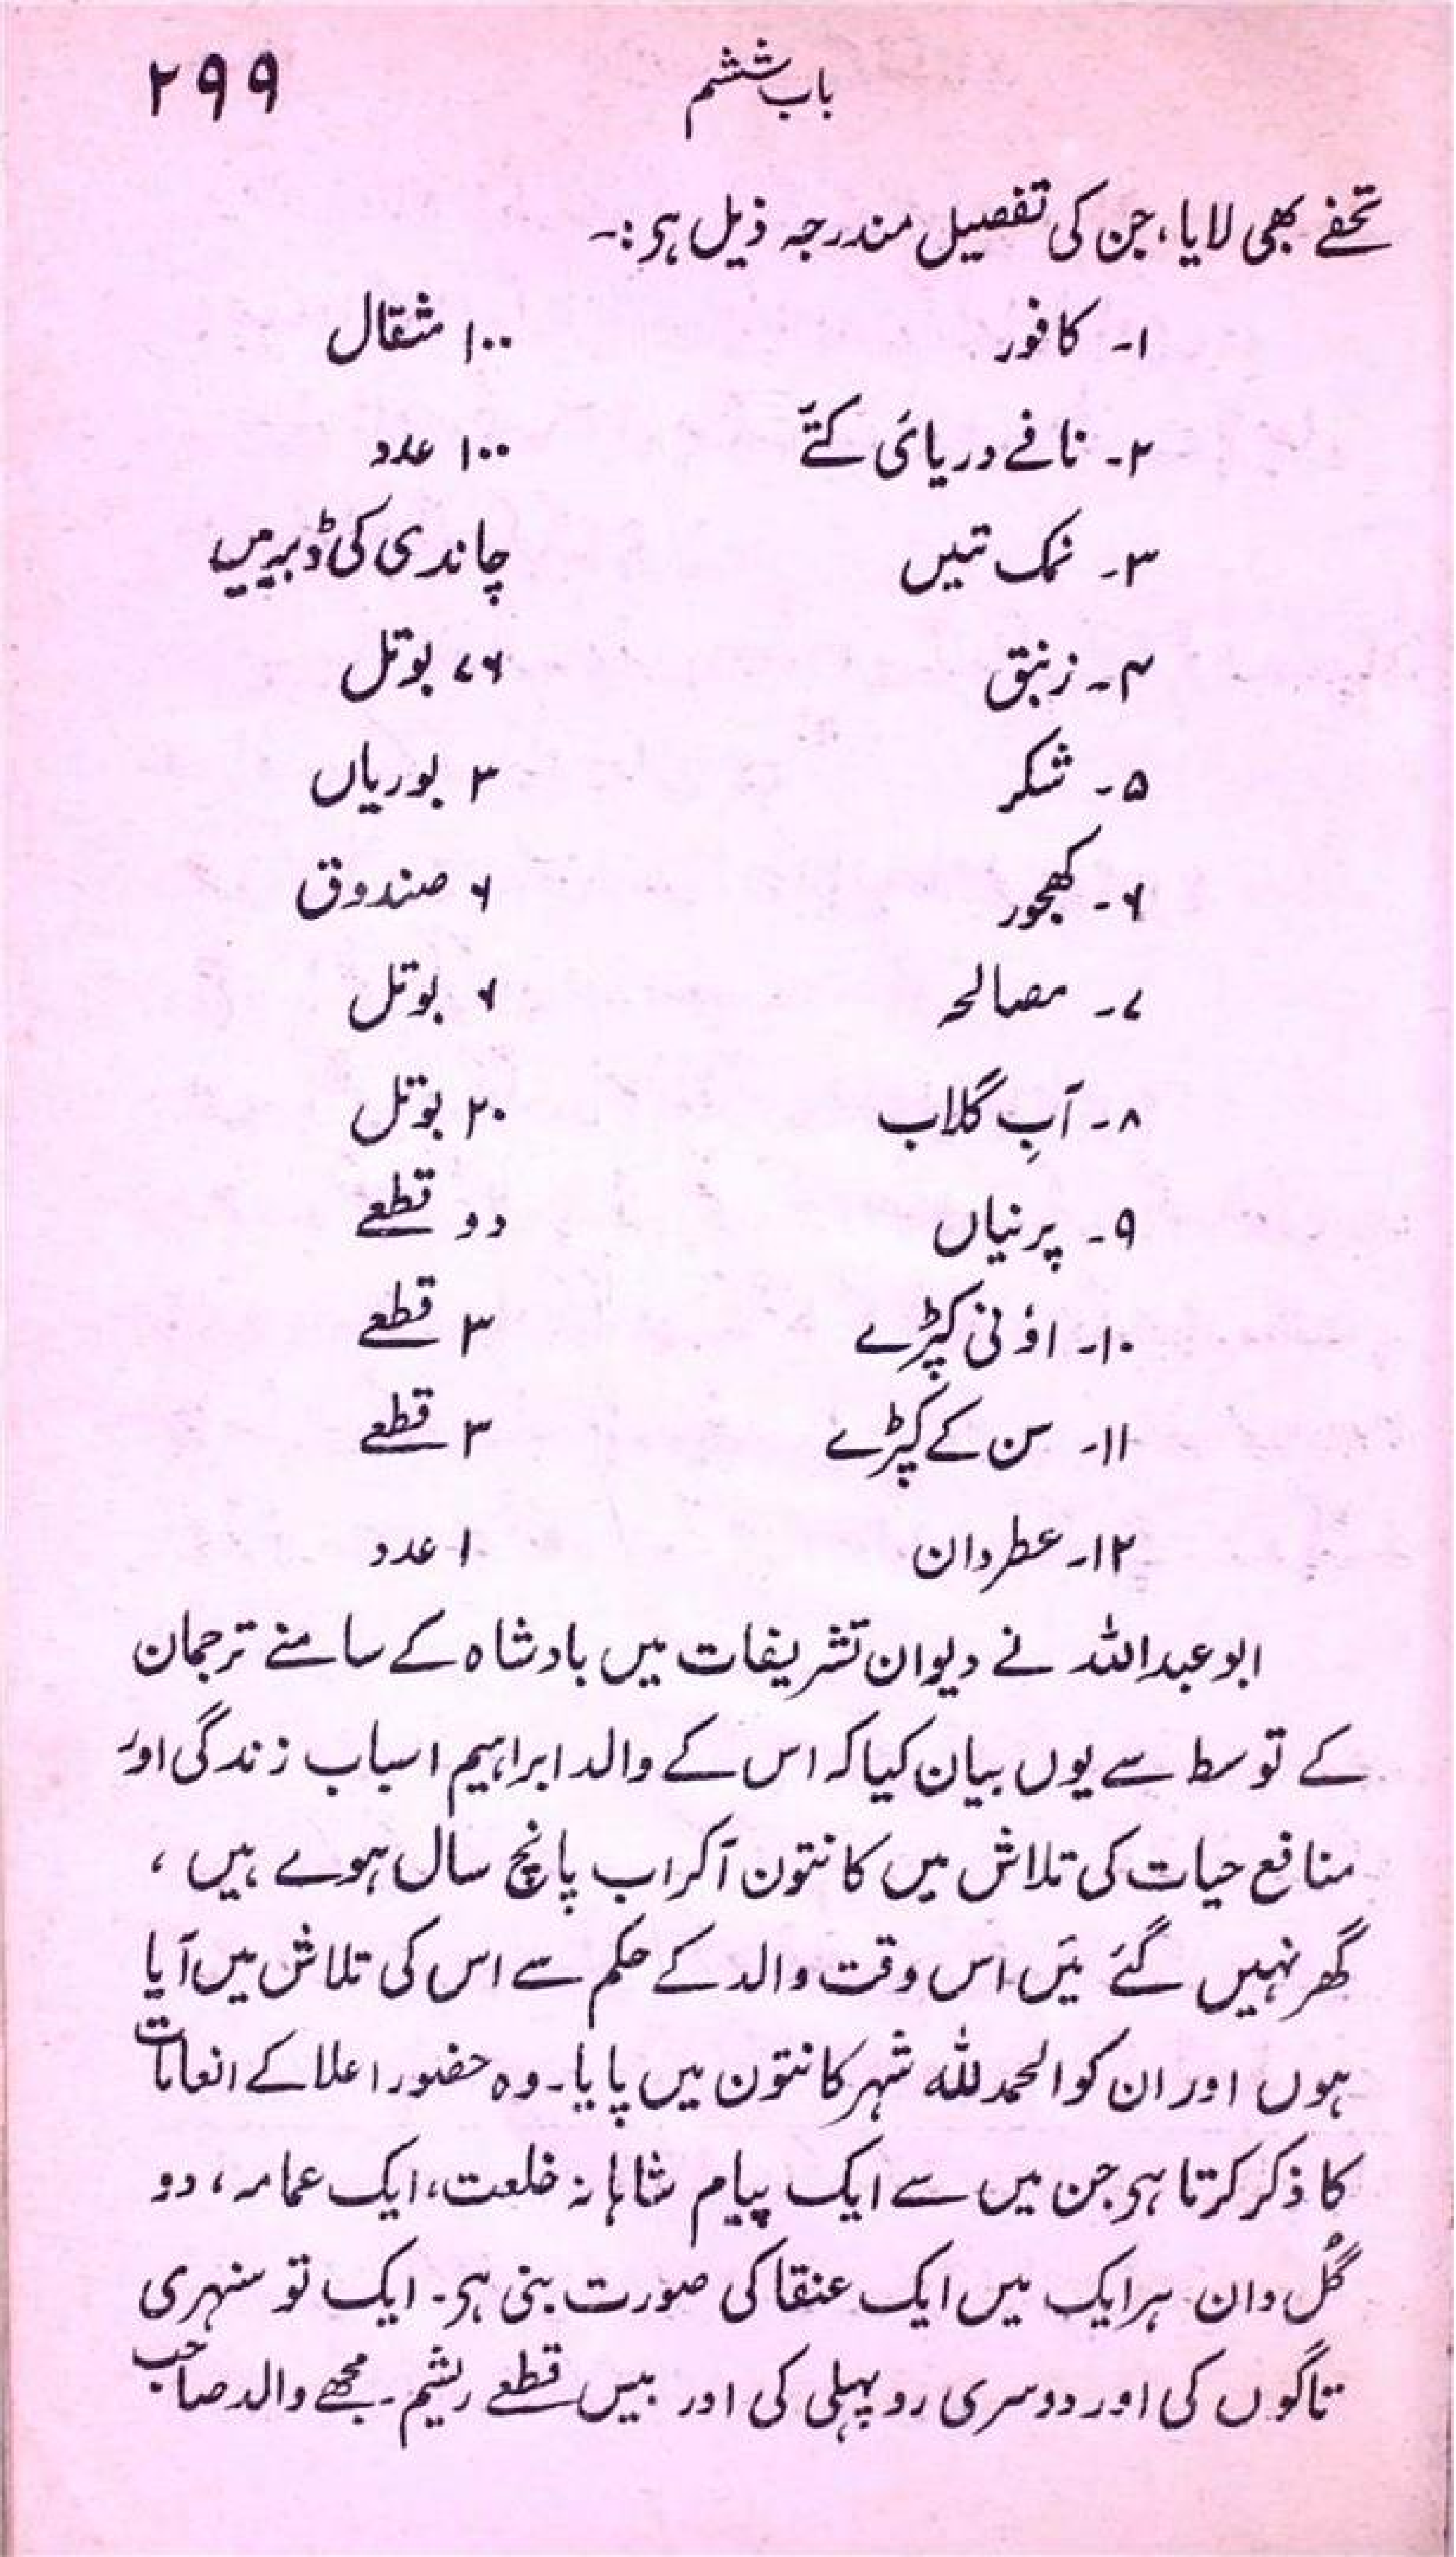 باب ششم ۲۹۹
تحفے بھی لایا، جن کی تفصیل مندرجہ ذیل ہی:۔
۱۔ کافور ۱۰۰ مثقال
۲۔ نافے دریائی کتّے ۱۰۰ عدد
۳۔ نمک تیں چاندی کی ڈبیہ میں
۴۔ زنبق ۷۶ بوتل
۵۔ شکر ۳ بوریاں
۶۔ کھجور ۶ صندوق
۷۔ مصالحہ ۶ بوتل
۸۔ آبِ گلاب ۲۰ بوتل
۹۔ پرنیاں دو قطعے
۱۰۔ اؤنی کپڑے ۳ قطعے
۱۱۔ سن کے کپڑے ۳ قطعے
۱۲۔ عطردان ۱ عدد
ابو عبداللہ نے دیوان تشریفات میں بادشاہ کے سامنے ترجمان
کے توسط سے یوں بیان کیا کہ اس کے والد ابراہیم اسباب زندگی اور
منافع حیات کی تلاش میں کانتون آکر اب پانچ سال ہوے ہیں ،
گھر نہیں گئے مَیں اس وقت والد کے حکم سے اس کی تلاش میں آیا
ہوں اور ان کو الحمدللہ شہر کانتون میں پایا۔ وہ حضور اعلا کے انعامات
کا ذکر کرتا ہی جن میں سے ایک پیام شاہانہ خلعت، ایک عمامہ، دو
گُل دان ہر ایک میں ایک عنقا کی صورت بنی ہی۔ ایک تو سنہری
تاگوں کی اور دوسری روپہلی کی اور بیس قطعے ریشم۔ مجھے والد صاحب